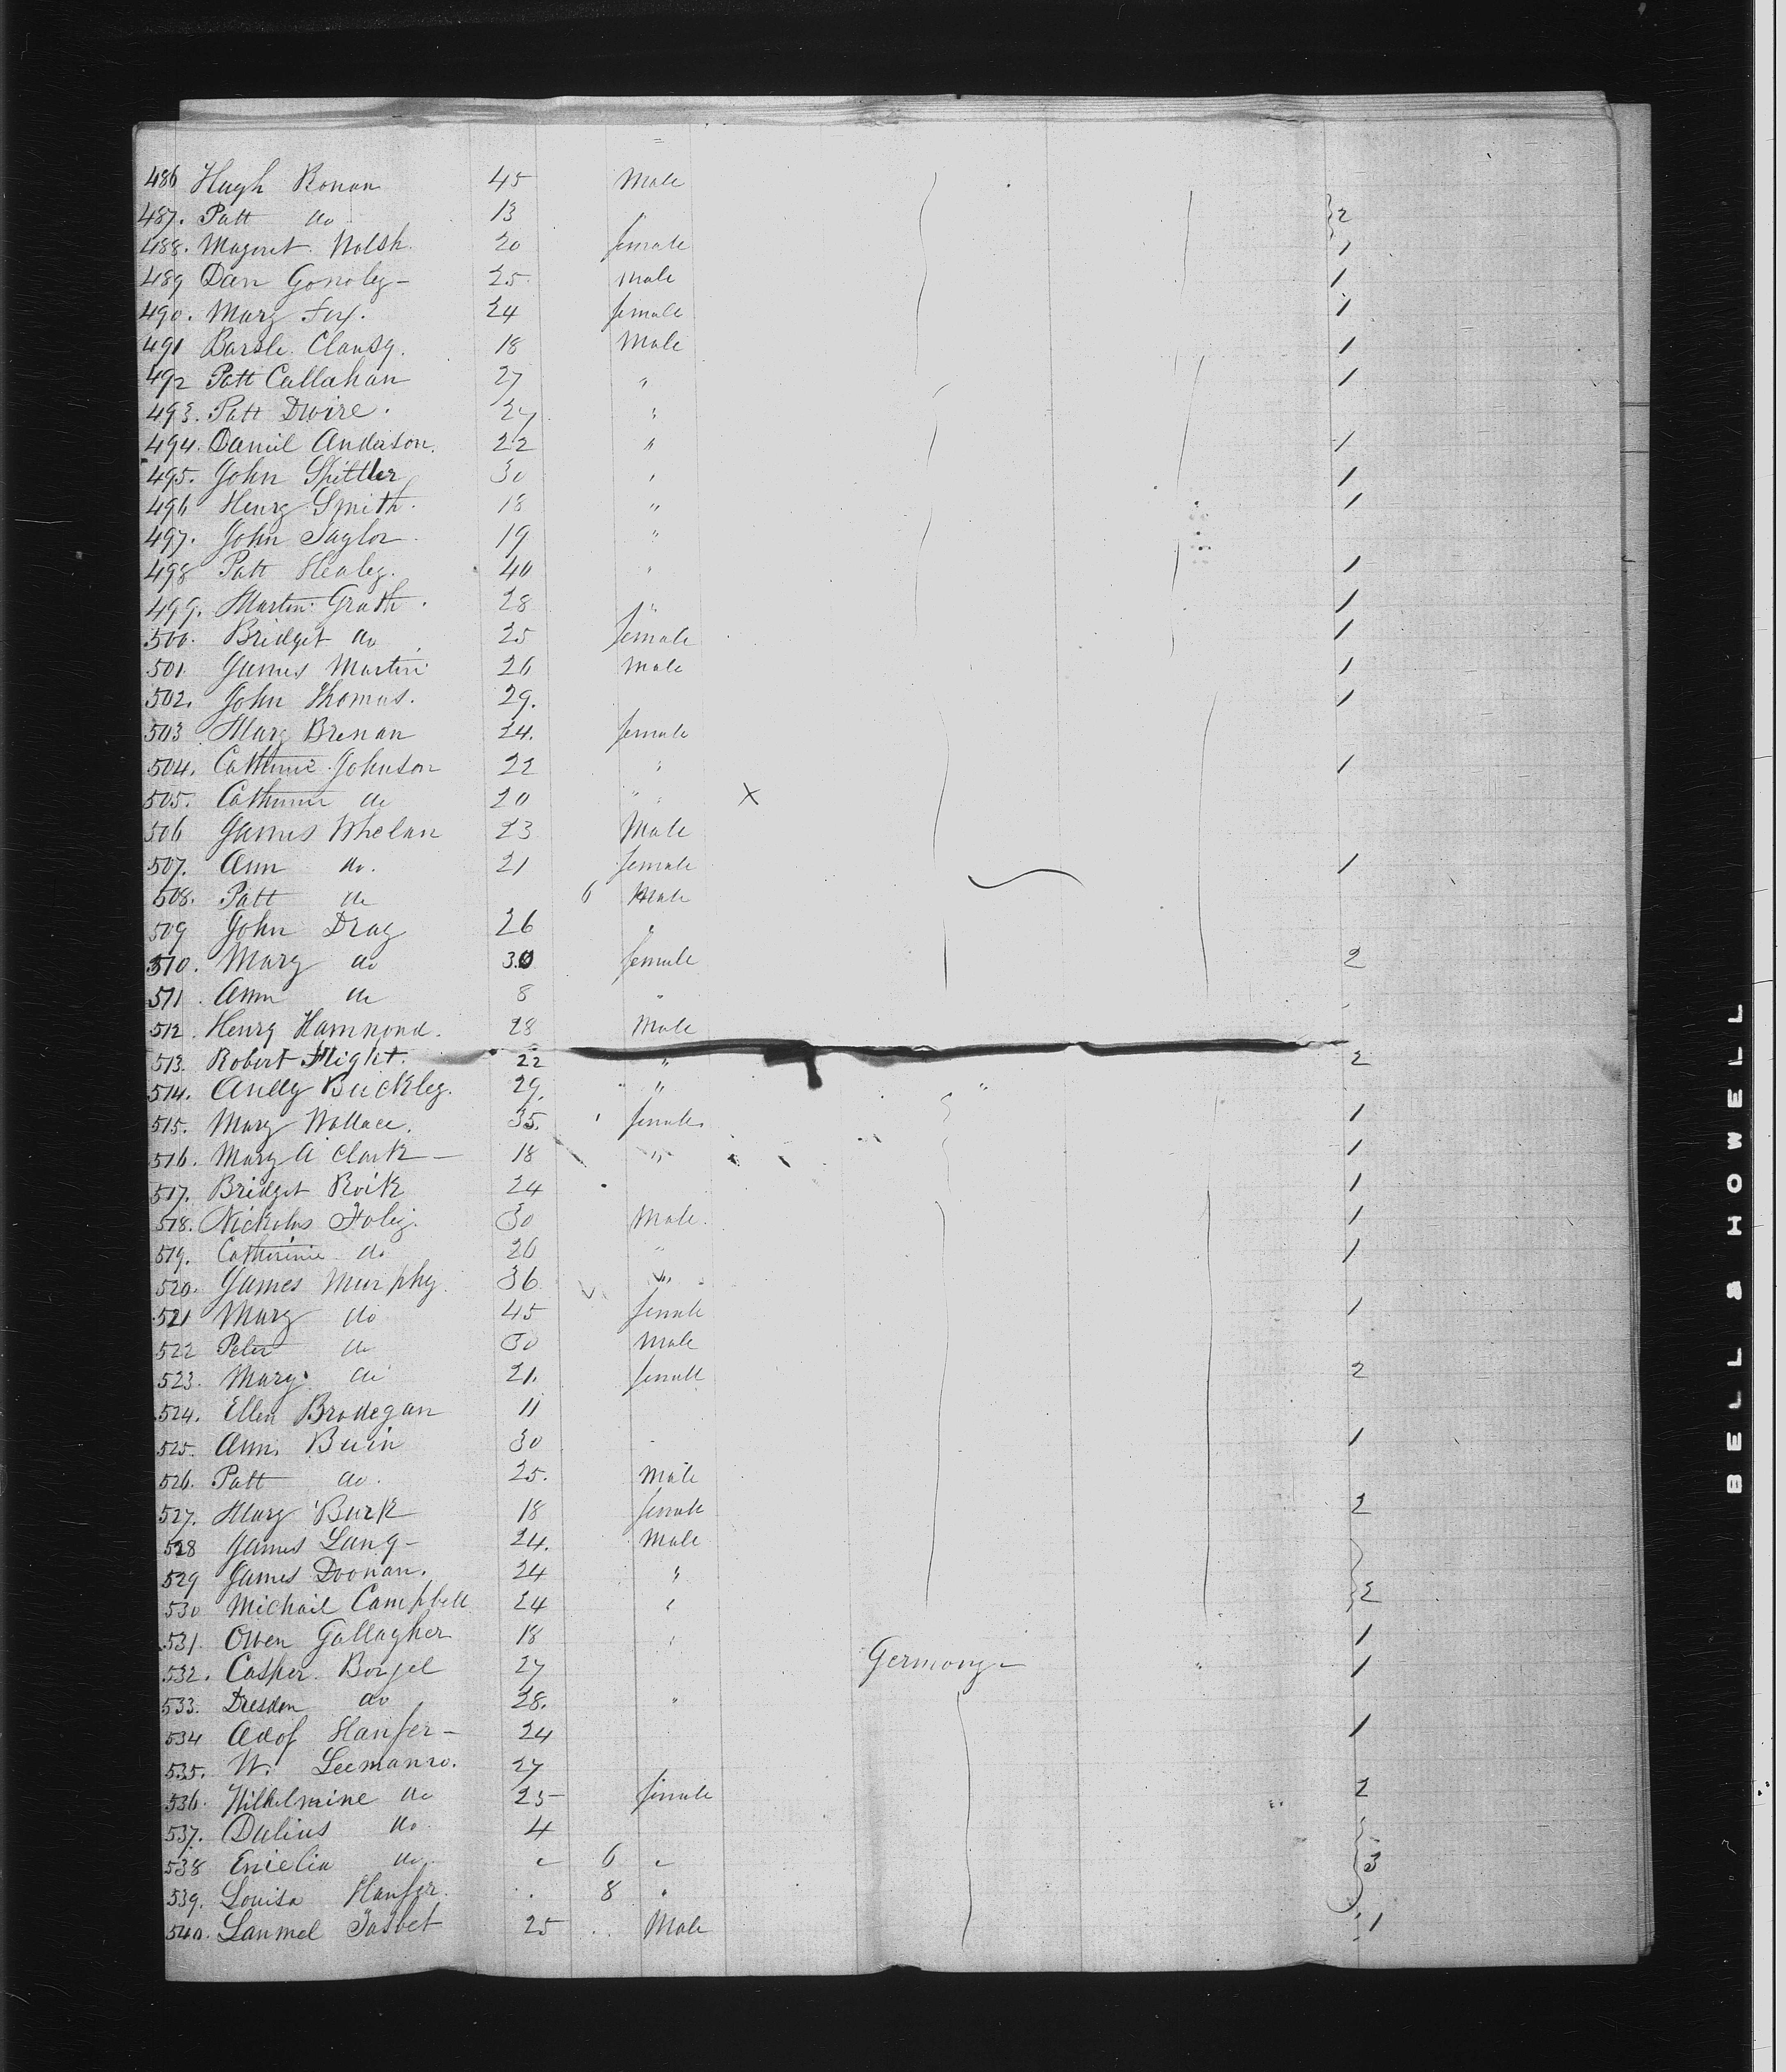 486 Hugh Ronan 45 Male
487. Patt do 13 " 2
488. Magret Walsh. 20 female 1
489 Dan Gonoley- 25. Male 1
490. Mary Fox. 24 female 1
491 Clansy. 18 Male 1
492 Patt Callahan 27 " 1
493. Patt Dwire. 27 "
494. Daniel Anderson. 22 " 1
495. John Spittler 30 " 1
496 Henry Smith. 18 " 1
497. John Taylor 19 "
498 Patt Healey. 40 " 1
499. Martin Grath. 28 " 1
500. Bridget do 25 female 1
501. James Martin 26 Male 1
502. John Thomas. 29. 1
503 Mary Brenan 24. female
504. Catherine Johnson 22 " 1
505. Catherine do 20 " X
506 James Whelan 23 Male
507. Ann do. 21 female 1
508. Patt do 6 Male
509 John Dray 26 "
510. Mary do 30 female 2
511. Ann do 8 "
512. Henry Hammond. 28 Male
513. Robert Flight. 22 " 2
514. Andy Buckley. 29. " "
515. Mary Wallace. 35. female 1
516. Mary A Clark - 18 " 1
517. Bridget Roik 24 1
518. Nickolas Foley. 30 Male. 1
519. Catherine do 26 " 1
520. James Murphy. 36 "
521 Mary do 45 female 1
522 Peter do 30 Male
523. Mary do 21. female 2
524. Ellen Brodegan 11
525. Ann. Buin 30 1
526. Patt do. 25. Male
527. Mary Burk 18 female 2
528 James Lang- 24. Male
529 James Doonan. 24 "
530 Michail Campbell 24 " 2
531. Owen Gallagher 18 " 1
532. Casper Borjel 27 Germony " 1
533. Dresden do 28. "
534 Adof Hanfer- 24 1
535. W. Leemanro. 27
536. Wilhelmine do 25- female 2
537. Dulius do 4
538 Emelia do. 6 3
539. Louisa Hanfer. 8 "
540. Lanmel Tasbet 25 Male 1
BELL & HOWELL